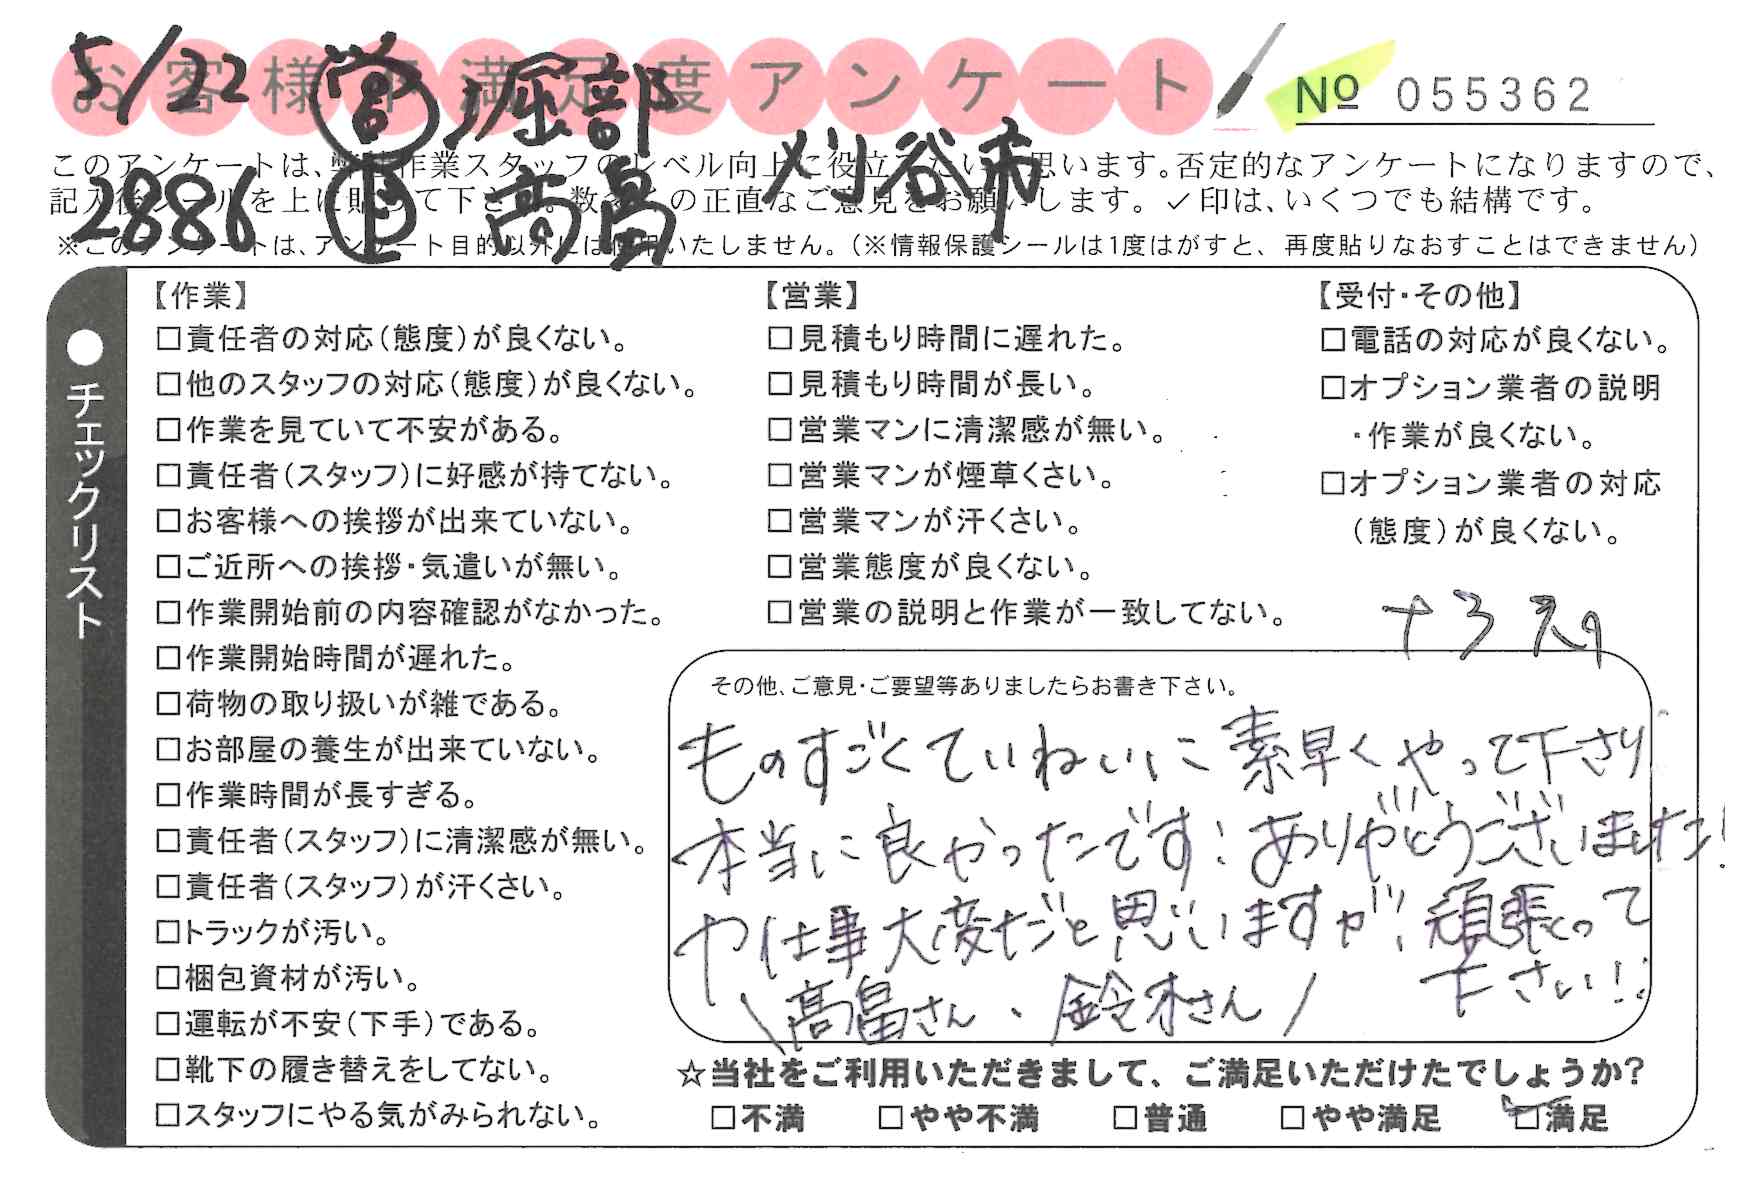 お客様不満足度アンケート
№ 055362
5/22 営 堀部
2886 高畠 刈谷市
このアンケートは、弊社作業スタッフのレベル向上に役立てたいと思います。否定的なアンケートになりますので、
記入後シールを上に貼って下さい。数多くの正直なご意見をお願いします。✓印は、いくつでも結構です。
※このアンケートは、アンケート目的以外には使用いたしません。(※情報保護シールは1度はがすと、再度貼りなおすことはできません)
●チェックリスト
【作業】
□責任者の対応(態度)が良くない。
□他のスタッフの対応(態度)が良くない。
□作業を見ていて不安がある。
□責任者(スタッフ)に好感が持てない。
□お客様への挨拶が出来ていない。
□ご近所への挨拶・気遣いが無い。
□作業開始前の内容確認がなかった。
□作業開始時間が遅れた。
□荷物の取り扱いが雑である。
□お部屋の養生が出来ていない。
□作業時間が長すぎる。
□責任者(スタッフ)に清潔感が無い。
□責任者(スタッフ)が汗くさい。
□トラックが汚い。
□梱包資材が汚い。
□運転が不安(下手)である。
□靴下の履き替えをしてない。
□スタッフにやる気がみられない。
【営業】
□見積もり時間に遅れた。
□見積もり時間が長い。
□営業マンに清潔感が無い。
□営業マンが煙草くさい。
□営業マンが汗くさい。
□営業態度が良くない。
□営業の説明と作業が一致してない。
【受付・その他】
□電話の対応が良くない。
□オプション業者の説明
・作業が良くない。
□オプション業者の対応
(態度)が良くない。
その他、ご意見・ご要望等ありましたらお書き下さい。
ものすごくていねいに素早くやって下さり
本当に良かったです！ありがとうございました！
お仕事大変だと思いますが、頑張って
下さい!!
\高畠さん、鈴木さん/
☆当社をご利用いただきまして、ご満足いただけたでしょうか?
□不満 □やや不満 □普通 □やや満足 ☑満足